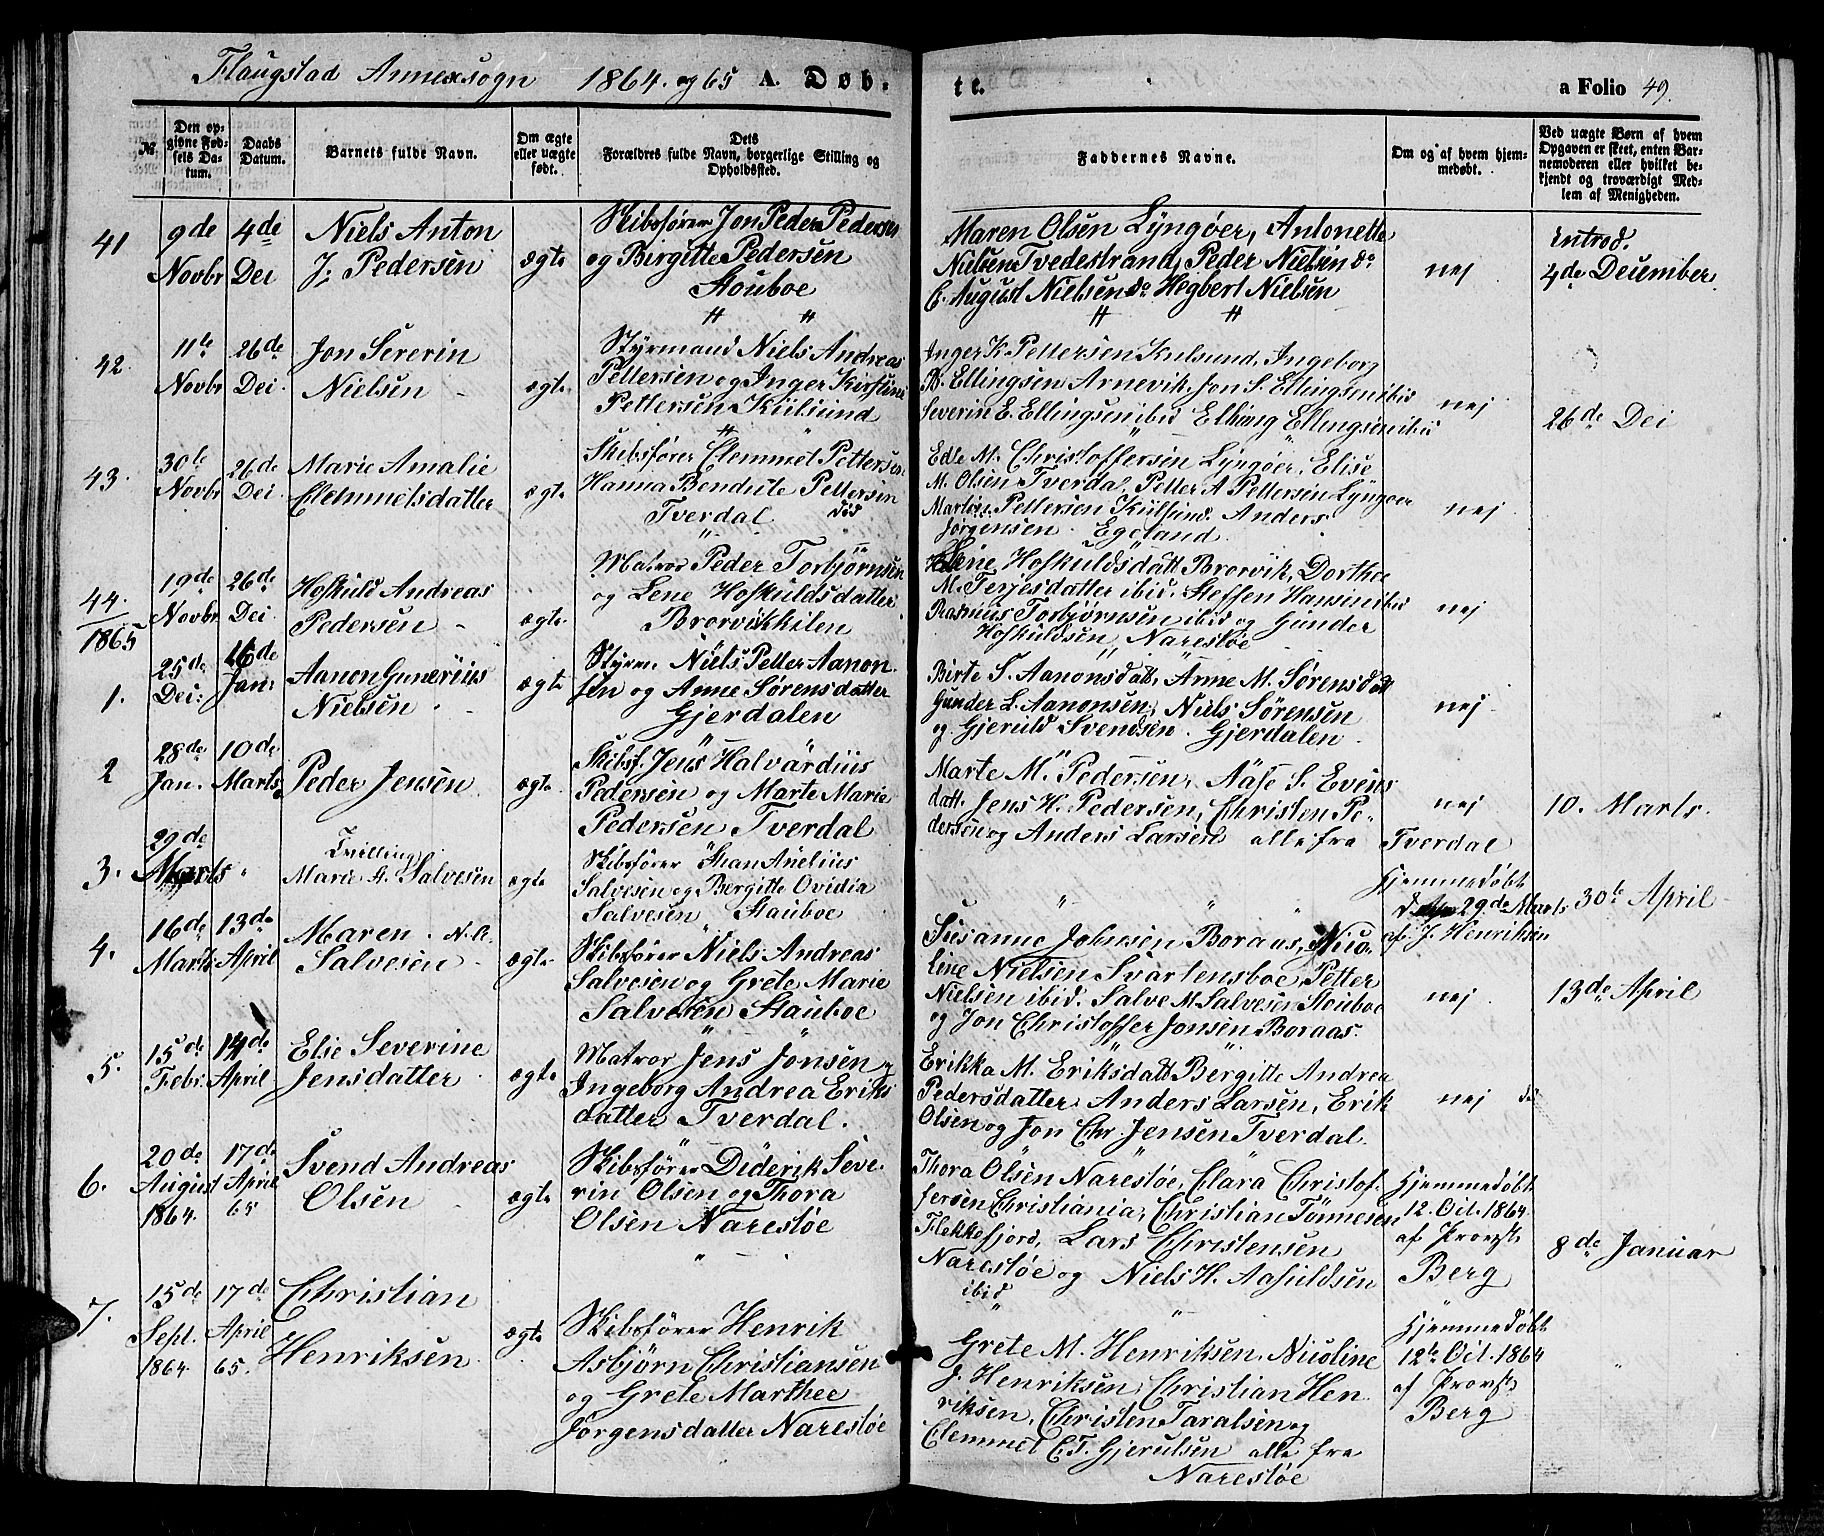 Flaugstad Annexsogn 1864. og 65 A. Døb-
te.
a Folio 49.
№
Den op-
givne Fød-
sels Da-
tum.
Daabs
Datum.
Barnets fulde Navn.
Om ægte
eller uægte
født.
Dets
Forældres fulde Navn, borgerlige Stilling og
Opholdssted.
Faddernes Navne.
Om og af hvem hjem-
medøbt.
Ved uægte Børn af hvem
Opgaven er skeet, enten Bar-
nemoderen eller hvilket be-
kjendt og troværdigt Med-
lem af Menigheden.
41
9de
Novbr
4de
Dec
Niels Anton
J. Pedersen
ægte
Skibsfører Jon Peder Pedersen
og Birgitte Pedersen
Stouboe
Maren Olsen Lyngøer, Antonette
Nielsen Tvedestrand, Peder Nielsen do
C. August Nielsen do Hegbert Nielsen
nej
Introd.
4de December
42.
11te
Novbr
26de
Dec.
Jon Severin
Nielsen
ægte
Styrmand Niels Andreas
Pettersen og Inger Kirstine
Pettersen Kiilsund
Inger K. Pettersen Kiilsund, Ingeborg
B. Ellingsen Arnevik, Jon S. Ellingsen ibid
Severin E. Ellingsen ibid Elling Ellingsen ibid
nej
26de Dec
43.
30te
Novbr
26de
Dec.
Marie Amalie
Clemmetsdatter
ægte
Skibsfører Clemmet Pettersen
Hanna Bendicte Pettersen
Tverdal
Edle M. Christoffersen Lyngøer, Elise
M. Olsen Tverdal, Petter A Pettersen Lyngøer
Martin Pettersen Kiilsund. Anders
Jørgensen Egeland
nej
44.
19de
Novbr
26de
Dec
Hofkuld Andreas
Pedersen
ægte
Matros Peder Torbjørnsen
og Lene Hofkuldsdatter
Brorvikkilen
Lene Hofkuldsdatt Brorvik, Dorthee
M. Terjesdatter ibid. Steffen Hansen ibid
Rasmus Torbjørnsen ibid og Gunder
Hofkuldsen, Narestøe
nej
1865
1.
25de
Dec:
16de
Jan:
Aanon Gunerius
Nielsen
ægte
Styrm. Niels Petter Aanon-
sen og Anne Sørensdatter
Gjerdalen
Birte S. Aanonsdatt, Anne M. Sørensdatt
Gunder L. Aanonsen, Niels Sørensen
og Gjeruld Svendsen. Gjerdalen
nej
2
28de
Jan.
10de
Marts
Peder Jensen
ægte
Skibsf. Jens Halvardius
Pedersen og Marte Marie
Pedersen Tverdal
Marte M. Pedersen, Aase S. Evens
datt. Jens H. Pedersen, Christen Pe-
dersen og Anders Larsen alle fra Tverdal
nej
10. Marts
3.
29de
Marts
Tvilling
Marie A. Salvesen
ægte
Skibsfører
Salvesen og Bergitte Ovidia
Salvesen Stauboe
Hjemmedøbt
29de Marts
af J. Henriksen
30te April
4.
16de
Marts
13de
April
Maren N. A.
Salvesen
ægte
Skibsfører Niels Andreas
Salvesen og Grete Marie
Salvesen Stauboe
Susanne Johnsen Boraas, Nico-
line Nielsen Svartensboe, Petter
Nielsen ibid. Salve M Salvesen Stouboe
og Jon Christoffer Jonsen Boraas.
nej
13de April
5.
15de
Febr.
14de
April
Else Severine
Jensdatter
ægte
Matros Jens Jonsen og
Ingeborg Andrea Eriks
datter Tverdal.
Erikka M. Eriksdatt Bergitte Andrea
Pedersdatter, Anders Larsen, Erik
Olsen og Jon Chr. Jensen Tverdal.
nej
6.
20de
August
1864.
17de
April
65
Svend Andreas
Olsen
ægte
Skibsfører Diderik Seve-
rin Olsen og Thora
Olsen Narestøe
Thora Olsen Narestøe, Clara Christof-
fersen Christiania, Christian Tønnesen
Flekkefjord, Lars Christensen
Narestøe og Niels H. Aasuldsen
ibid
Hjemmedøbt
12. Oct. 1864
af Provst
Berg
8de Januar
7.
15de
Sept.
1864
17de
April
65.
Christian
Henriksen
ægte
Skibsfører Henrik
Asbjørn Christiansen
og Grete Marthee
Jørgensdatter Narestøe
Grete M. Henriksen, Nicoline
J. Henriksen, Christian Hen
riksen, Christen Taralsen og
Clemmet C. T. Gjerulsen alle fra
Narestøe
Hjemmedøbt
12te Oct. 1864
af Provst
Berg